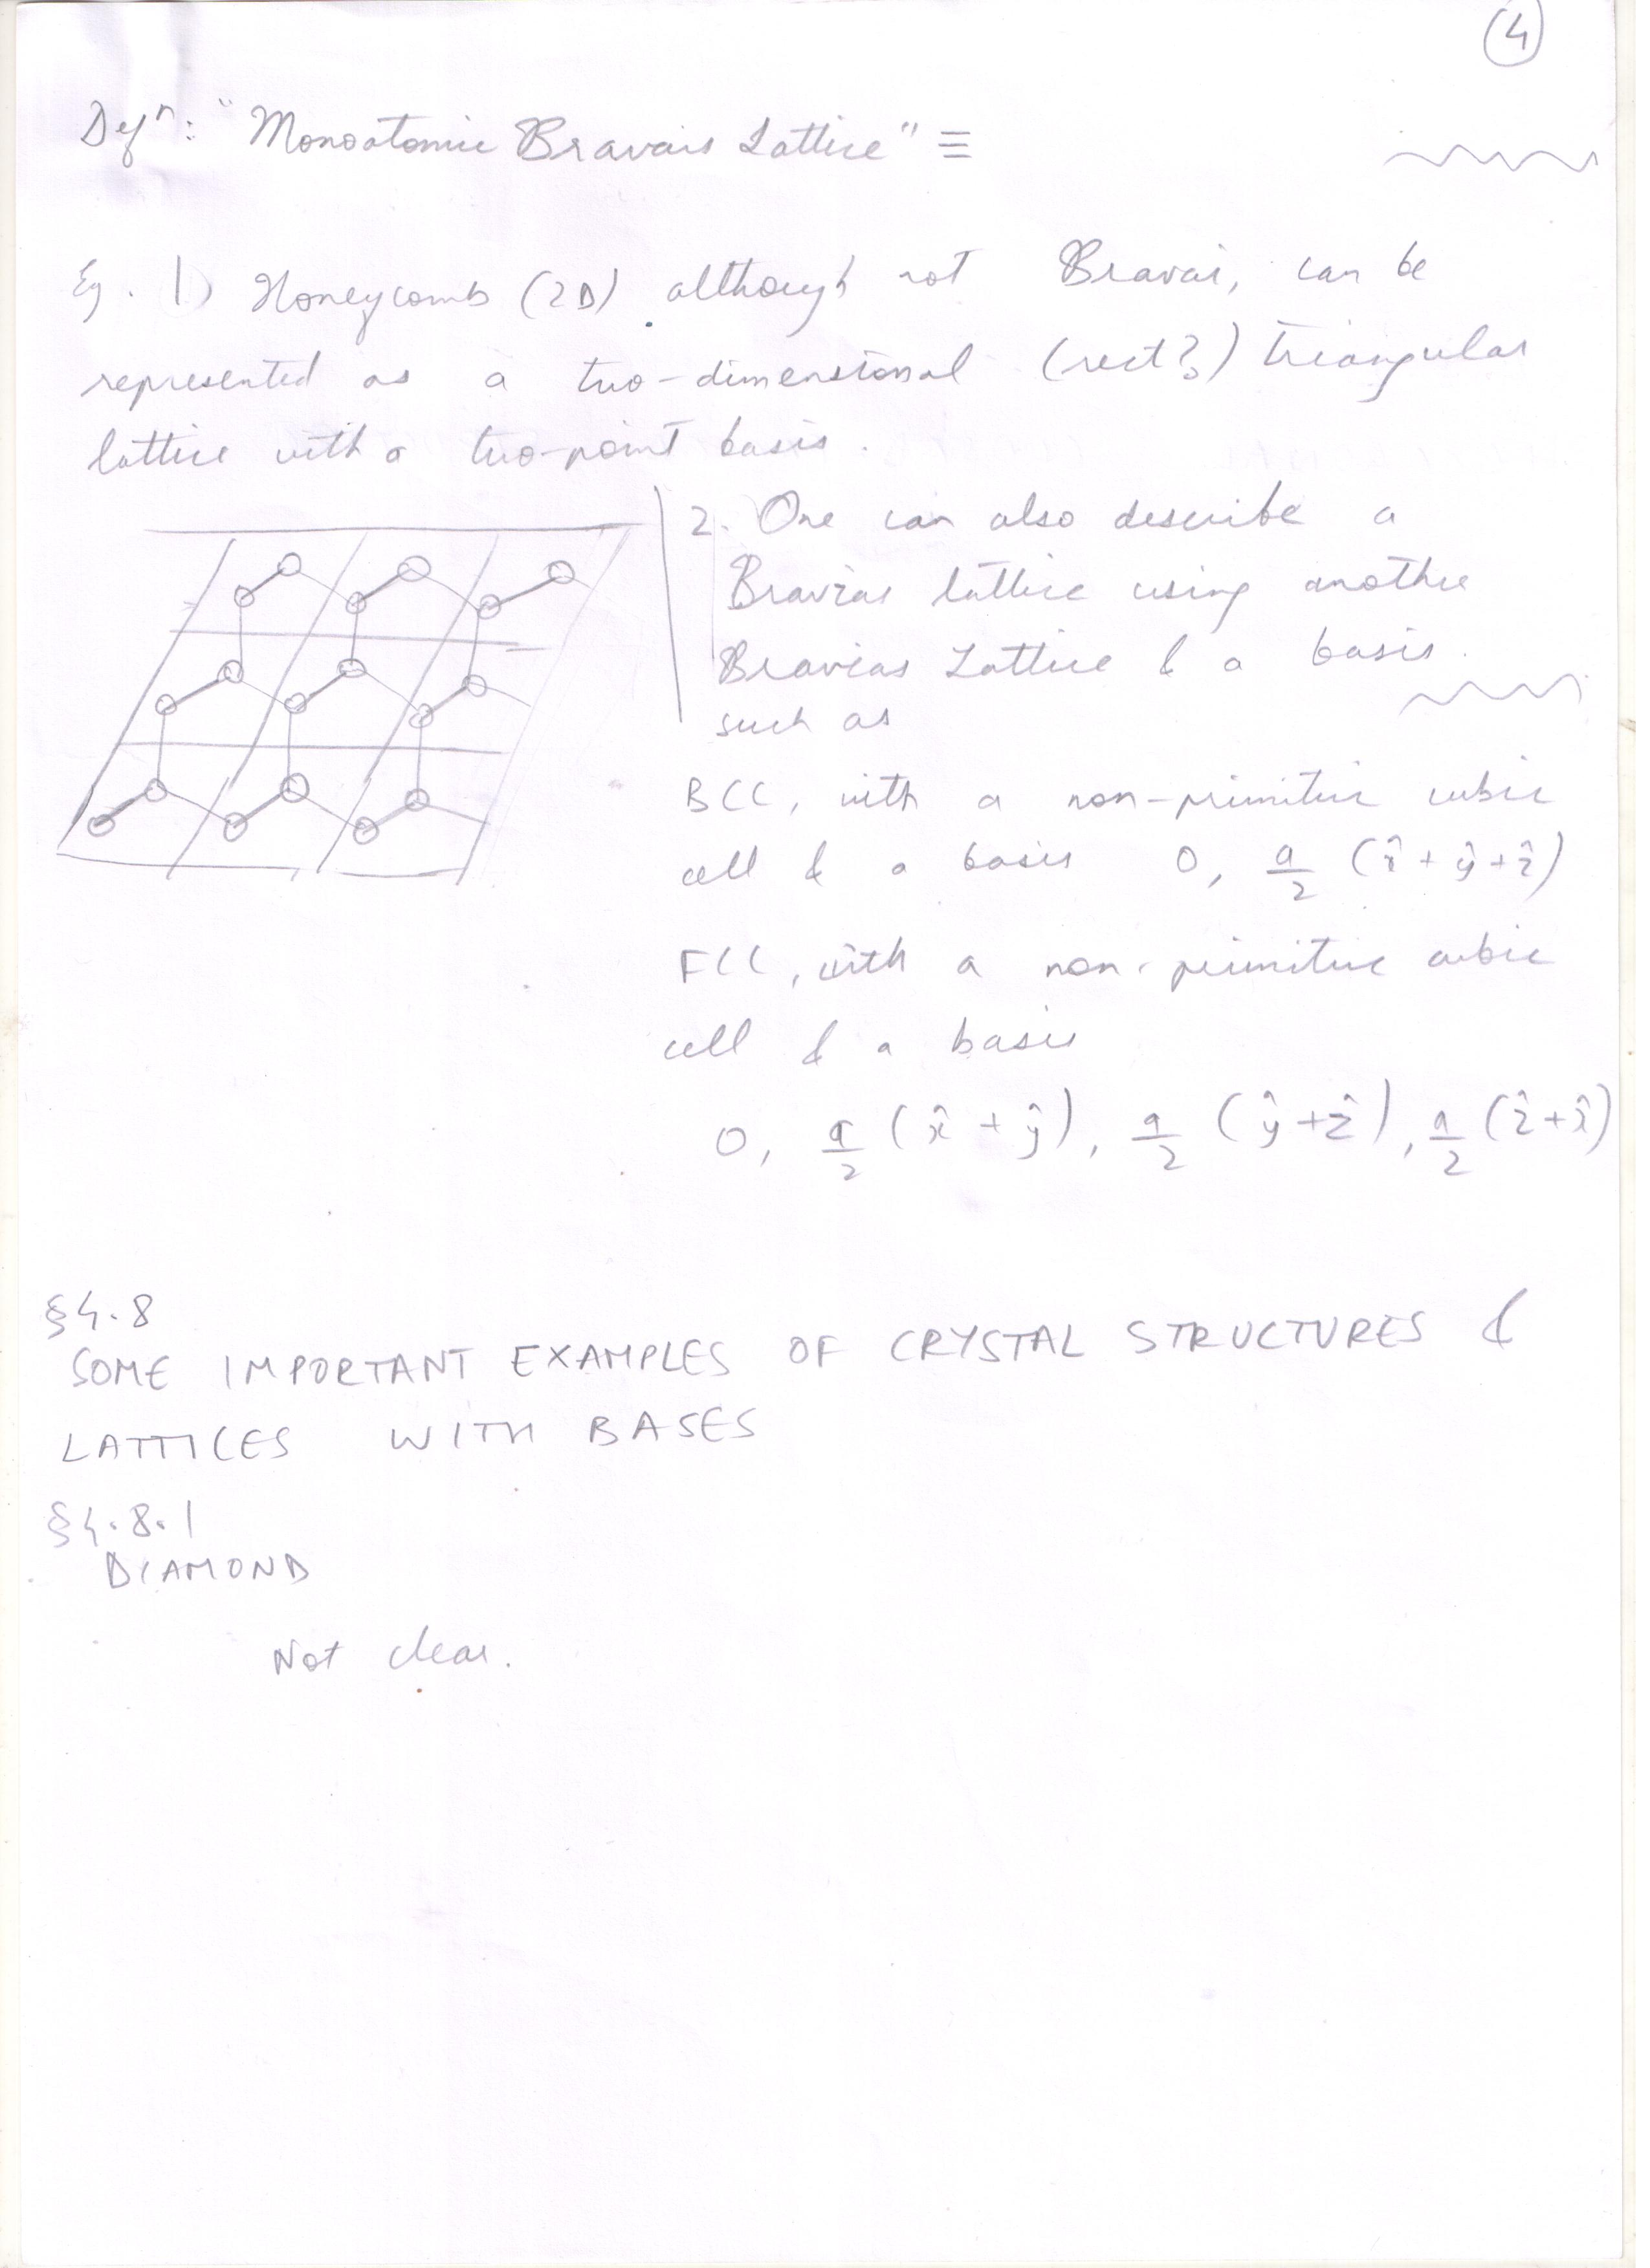 (4)
Defⁿ: "Monoatomic Bravais Lattice" ≡
Eg. 1) Honeycomb (2D) although not Bravai, can be
represented as a two-dimensional (rect?) triangular
lattice with a two-point basis.
2. One can also describe a
Bravias lattice using another
Bravias Lattice & a basis.
such as
BCC, with a non-primitive cubic
cell & a basis 0, a/2 (x̂ + ŷ + ẑ)
FCC, with a non-primitive cubic
cell & a basis
0, a/2 (x̂ + ŷ), a/2 (ŷ + ẑ), a/2 (ẑ + x̂)
§4.8
SOME IMPORTANT EXAMPLES OF CRYSTAL STRUCTURES &
LATTICES WITH BASES
§4.8.1
DIAMOND
Not clear.